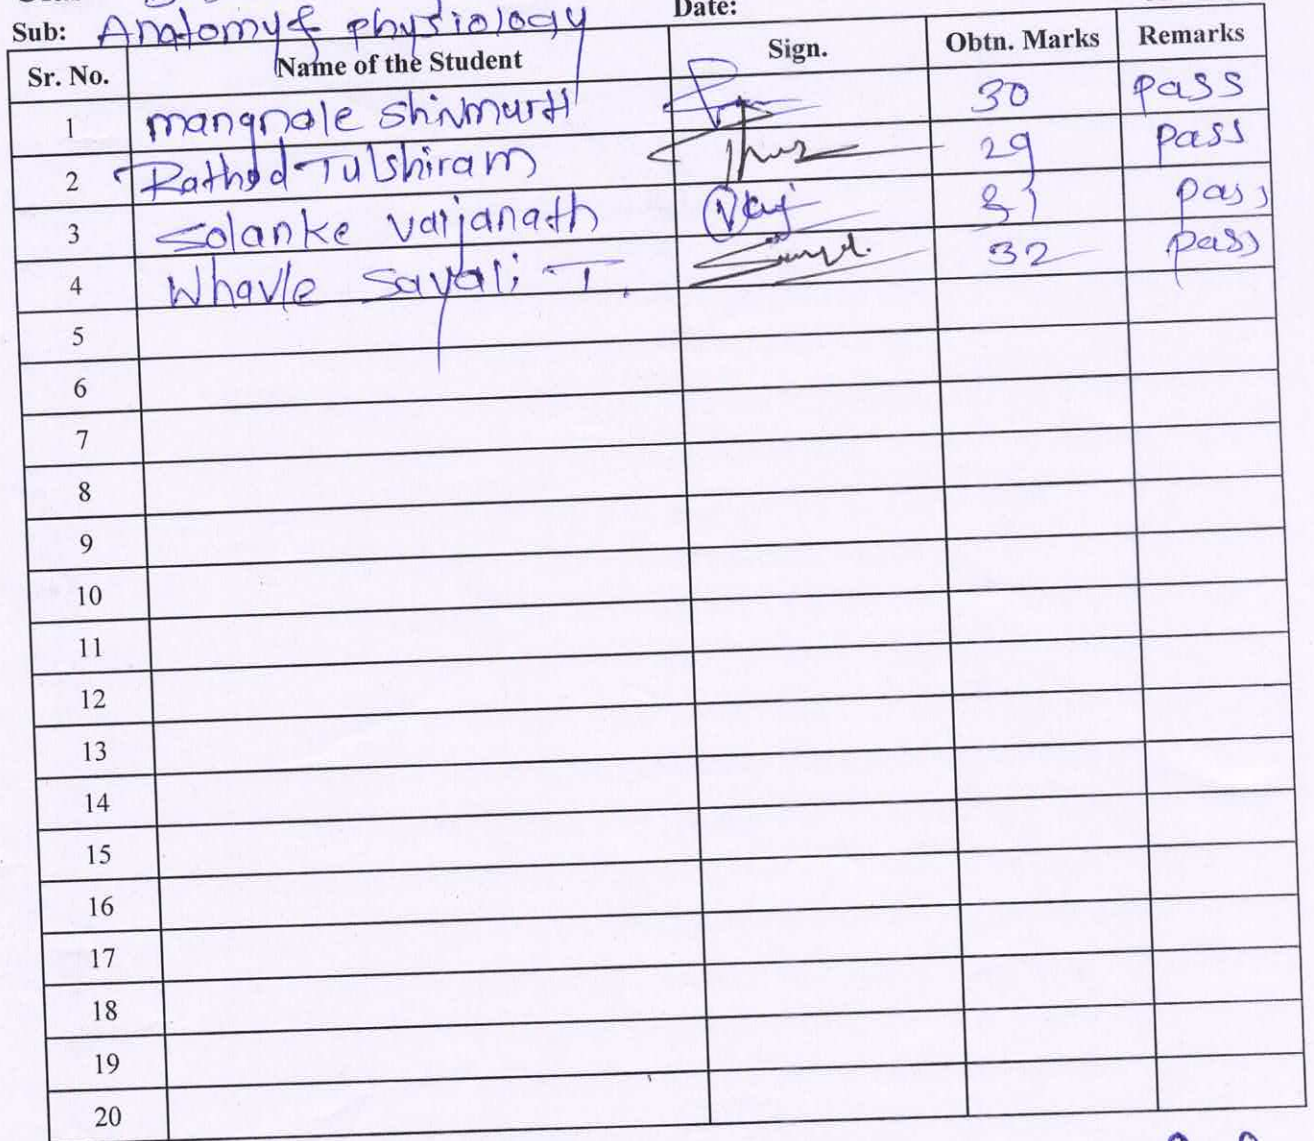 Sub: Anatomy & physiology Date:
Sr. No. Name of the Student Sign. Obtn. Marks Remarks
1 mangnale shivmurti 30 pass
2 Rathod Tulshiram 29 pass
3 Solanke vaijanath 31 pass
4 Whavle Sayali T. 32 pass
5
6
7
8
9
10
11
12
13
14
15
16
17
18
19
20